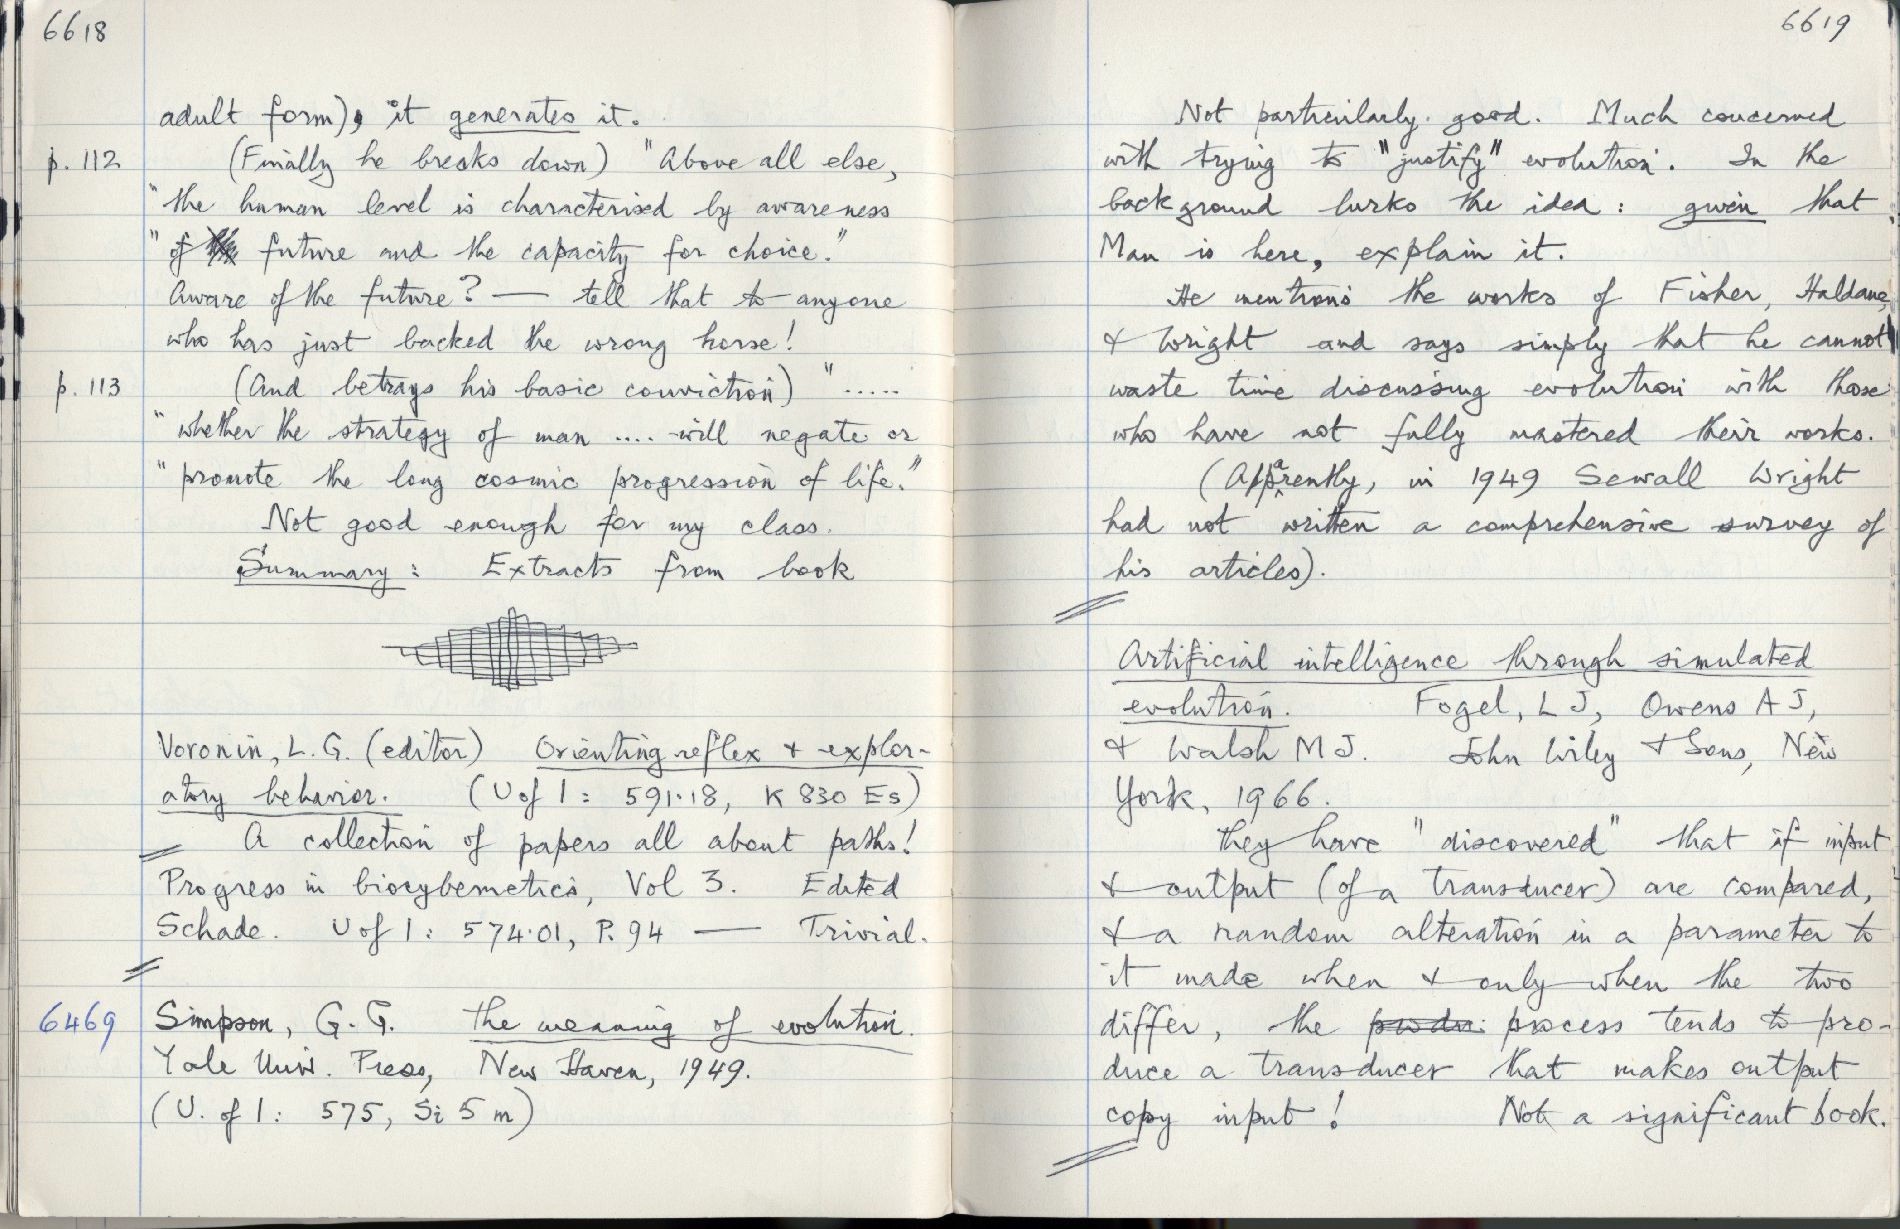 6618
adult form), it generates it.
p. 112 (Finally he breaks down) "Above all else,
"the human level is characterised by awareness
"of future and the capacity for choice."
Aware of the future? — tell that to anyone
who has just backed the wrong horse!
p. 113 (And betrays his basic conviction) ".....
"whether the strategy of man .... will negate or
"promote the long cosmic progression of life."
Not good enough for my class.
Summary: Extracts from book
Voronin, L.G. (editor) Orienting reflex & explor-
atory behavior. (U of I: 591.18, K 830 Es)
A collection of papers all about paths!
Progress in biocybernetics, Vol 3. Edited
Schade. U of I: 574.01, P.94 — Trivial.
6469 Simpson, G.G. The meaning of evolution.
Yale Univ. Press, New Haven, 1949.
(U. of I: 575, Si 5 m)
6619
Not particularly good. Much concerned
with trying to "justify" evolution. In the
background lurks the idea: given that
Man is here, explain it.
He mentions the works of Fisher, Haldane,
& Wright and says simply that he cannot
waste time discussing evolution with those
who have not fully mastered their works.
(Apparently, in 1949 Sewall Wright
had not written a comprehensive survey of
his articles).
Artificial intelligence through simulated
evolution. Fogel, L J, Owens A J,
& Walsh M J. John Wiley & Sons, New
York, 1966.
They have "discovered" that if input
& output (of a transducer) are compared,
& a random alteration in a parameter to
it made when & only when the two
differ, the process tends to pro-
duce a transducer that makes output
copy input! Not a significant book.